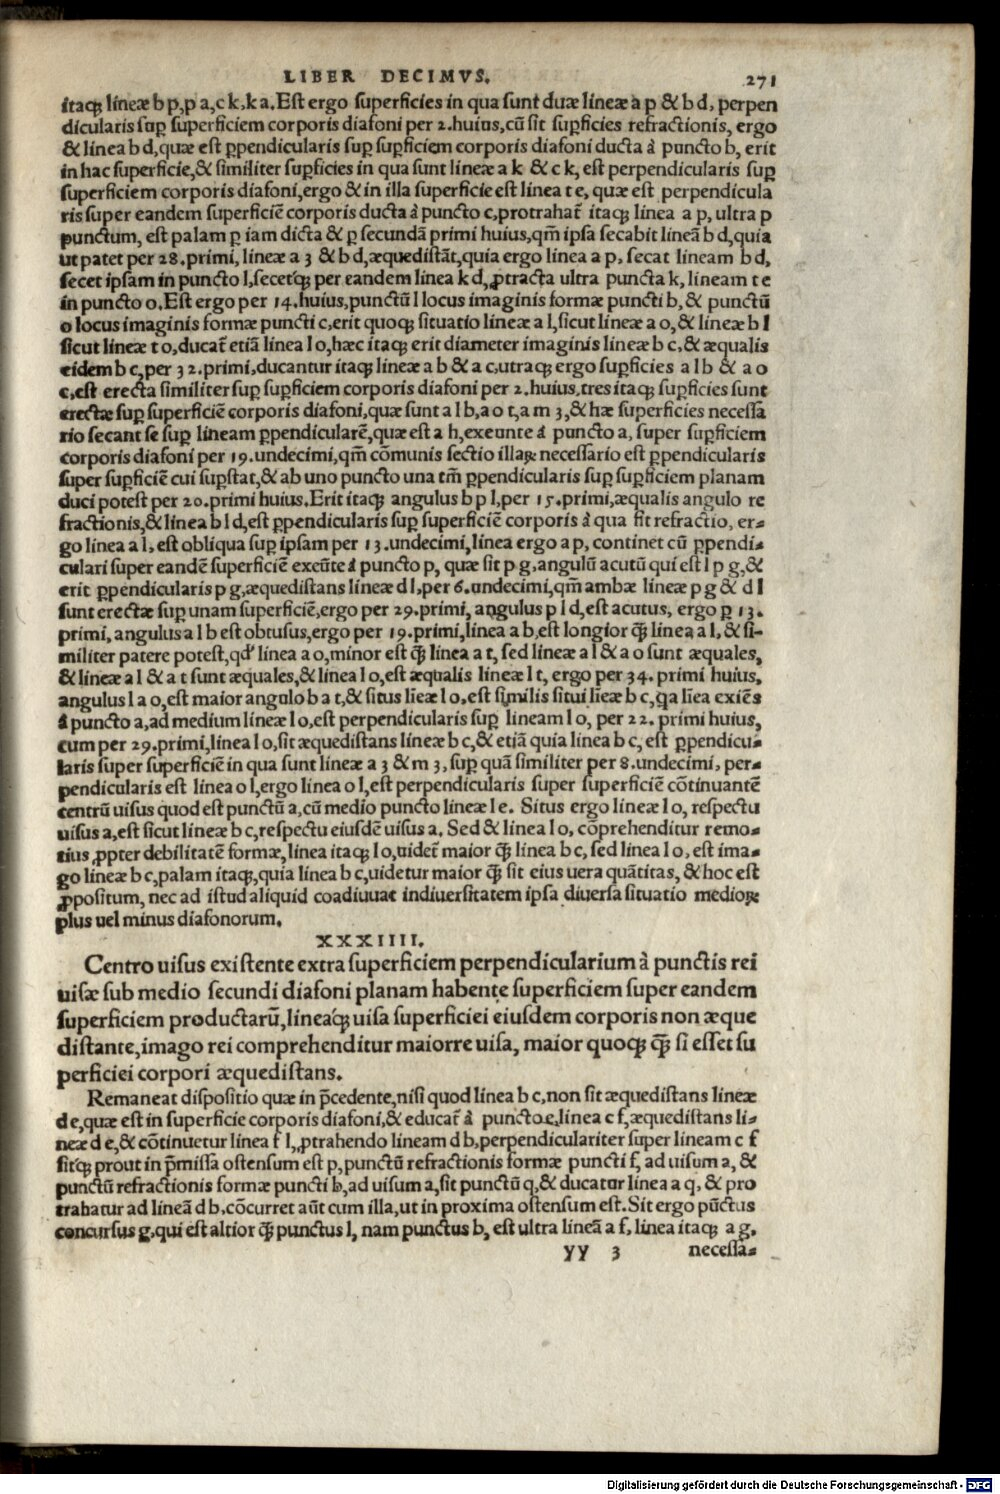 LIBER DECIMVS. 271
itaq; lineæ b p, p a, c k, k a. Est ergo superficies in qua sunt duæ lineæ a p & b d, perpen
dicularis suꝑ superficiem corporis diafoni per 2. huius, cũ sit suꝑficies refractionis, ergo
& linea b d, quæ est ꝑpendicularis suꝑ suꝑficiem corporis diafoni ducta à puncto b, erit
in hac superficie, & similiter suꝑficies in qua sunt lineæ a k & c k, est perpendicularis suꝑ
superficiem corporis diafoni, ergo & in illa superficie est linea t e, quæ est perpendicula
ris super eandem superficiẽ corporis ducta à puncto c, protrahat̃ itaq; linea a p, ultra p
punctum, est palam ꝑ iam dicta & ꝑ secundã primi huius, qm̃ ipsa secabit lineã b d, quia
ut patet per 28. primi, lineæ a 3 & b d, æquedistãt, quia ergo linea a p, secat lineam b d,
secet ipsam in puncto l, secetq; per eandem linea k d, ꝓtracta ultra puncta k, lineam t e
in puncto o. Est ergo per 14. huius, punctũ l locus imaginis formæ puncti b, & punctũ
o locus imaginis formæ puncti c, erit quoq; situatio lineæ a l, sicut lineæ a o, & lineæ b l
sicut lineæ t o, ducat̃ etiã linea l o, hæc itaq; erit diameter imaginis lineæ b c, & æqualis
eidem b c, per 32. primi, ducantur itaq; lineæ a b & a c, utraq; ergo suꝑficies a l b & a o
c, est erecta similiter suꝑ suꝑficiem corporis diafoni per 2. huius, tres itaq; suꝑficies sunt
erectæ suꝑ superficiẽ corporis diafoni, quæ sunt a l b, a o t, a m 3, & hæ superficies necessa
rio secant se suꝑ lineam ꝑpendicularẽ, quæ est a h, exeunte à puncto a, super suꝑficiem
corporis diafoni per 19. undecimi, qm̃ cõmunis sectio illaꝝ necessario est ꝑpendicularis
super suꝑficiẽ cui suꝑstat, & ab uno puncto una tm̃ ꝑpendicularis suꝑ suꝑficiem planam
duci potest per 20. primi huius. Erit itaq; angulus b p l, per 15. primi, æqualis angulo re
fractionis, & linea b l d, est ꝑpendicularis suꝑ superficiẽ corporis à qua fit refractio, er-
go linea a l, est obliqua suꝑ ipsam per 13. undecimi, linea ergo a p, continet cũ ꝑpendi-
culari super eandẽ superficiẽ exeũte à puncto p, quæ sit p g, angulũ acutũ qui est l p g, &
erit ꝑpendicularis p g, æquedistans lineæ d l, per 6. undecimi, qm̃ ambæ lineæ p g & d l
sunt erectæ suꝑ unam superficiẽ, ergo per 29. primi, angulus p l d, est acutus, ergo ꝑ 13.
primi, angulus a l b est obtusus, ergo per 19. primi, linea a b, est longior q̃; linea a l, & si-
militer patere potest, qd' linea a o, minor est q̃; linea a t, sed lineæ a l & a o sunt æquales,
& lineæ a l & a t sunt æquales, & linea l o, est æqualis lineæ l t, ergo per 34. primi huius,
angulus l a o, est maior angulo b a t, & situs lĩeæ l o, est similis situi lĩeæ b c, qa lĩea exiẽs
à puncto a, ad medium lineæ l o, est perpendicularis suꝑ lineam l o, per 22. primi huius,
cum per 29. primi, linea l o, sit æquedistans lineæ b c, & etiã quia linea b c, est ꝑpendicu-
laris super superficiẽ in qua sunt lineæ a 3 & m 3, suꝑ quã similiter per 8. undecimi, per-
pendicularis est linea o l, ergo linea o l, est perpendicularis super superficiẽ cõtinuantẽ
centrũ uisus quod est punctũ a, cũ medio puncto lineæ l e. Situs ergo lineæ l o, respectu
uisus a, est sicut lineæ b c, respectu eiusdẽ uisus a. Sed & linea l o, cõprehenditur remo-
tius ꝓpter debilitatẽ formæ, linea itaq; l o, uidet̃ maior q̃; linea b c, sed linea l o, est ima-
go lineæ b c, palam itaq;, quia linea b c, uidetur maior q̃; sit eius uera quãtitas, & hoc est
ꝓpositum, nec ad istud aliquid coadiuuat indiuersitatem ipsa diuersa situatio medioꝝ
plus uel minus diafonorum.
XXXIIII.
Centro uisus existente extra superficiem perpendicularium à punctis rei
uisæ sub medio secundi diafoni planam habente superficiem super eandem
superficiem productarũ, lineaq́; uisa superficiei eiusdem corporis non æque
distante, imago rei comprehenditur maior re uisa, maior quoq; q̃; si esset su
perficiei corpori æquedistans.
Remaneat dispositio quæ in p̃cedente, nisi quod linea b c, non sit æquedistans lineæ
d e, quæ est in superficie corporis diafoni, & educat̃ à puncto c, linea c f, æquedistans li-
neæ d e, & cõtinuetur linea f l, ꝓtrahendo lineam d b, perpendiculariter super lineam c f
sitq́; prout in p̃missa ostensum est p, punctũ refractionis formæ puncti f, ad uisum a, &
punctũ refractionis formæ puncti b, ad uisum a, sit punctũ q, & ducatur linea a q, & pro
trahatur ad lineã d b, cõcurret aũt cum illa, ut in proxima ostensum est. Sit ergo pũctus
concursus g, qui est altior q̃; punctus l, nam punctus b, est ultra lineã a f, linea itaq; a g,
yy 3 necessa-
Digitalisierung gefördert durch die Deutsche Forschungsgemeinschaft - DFG